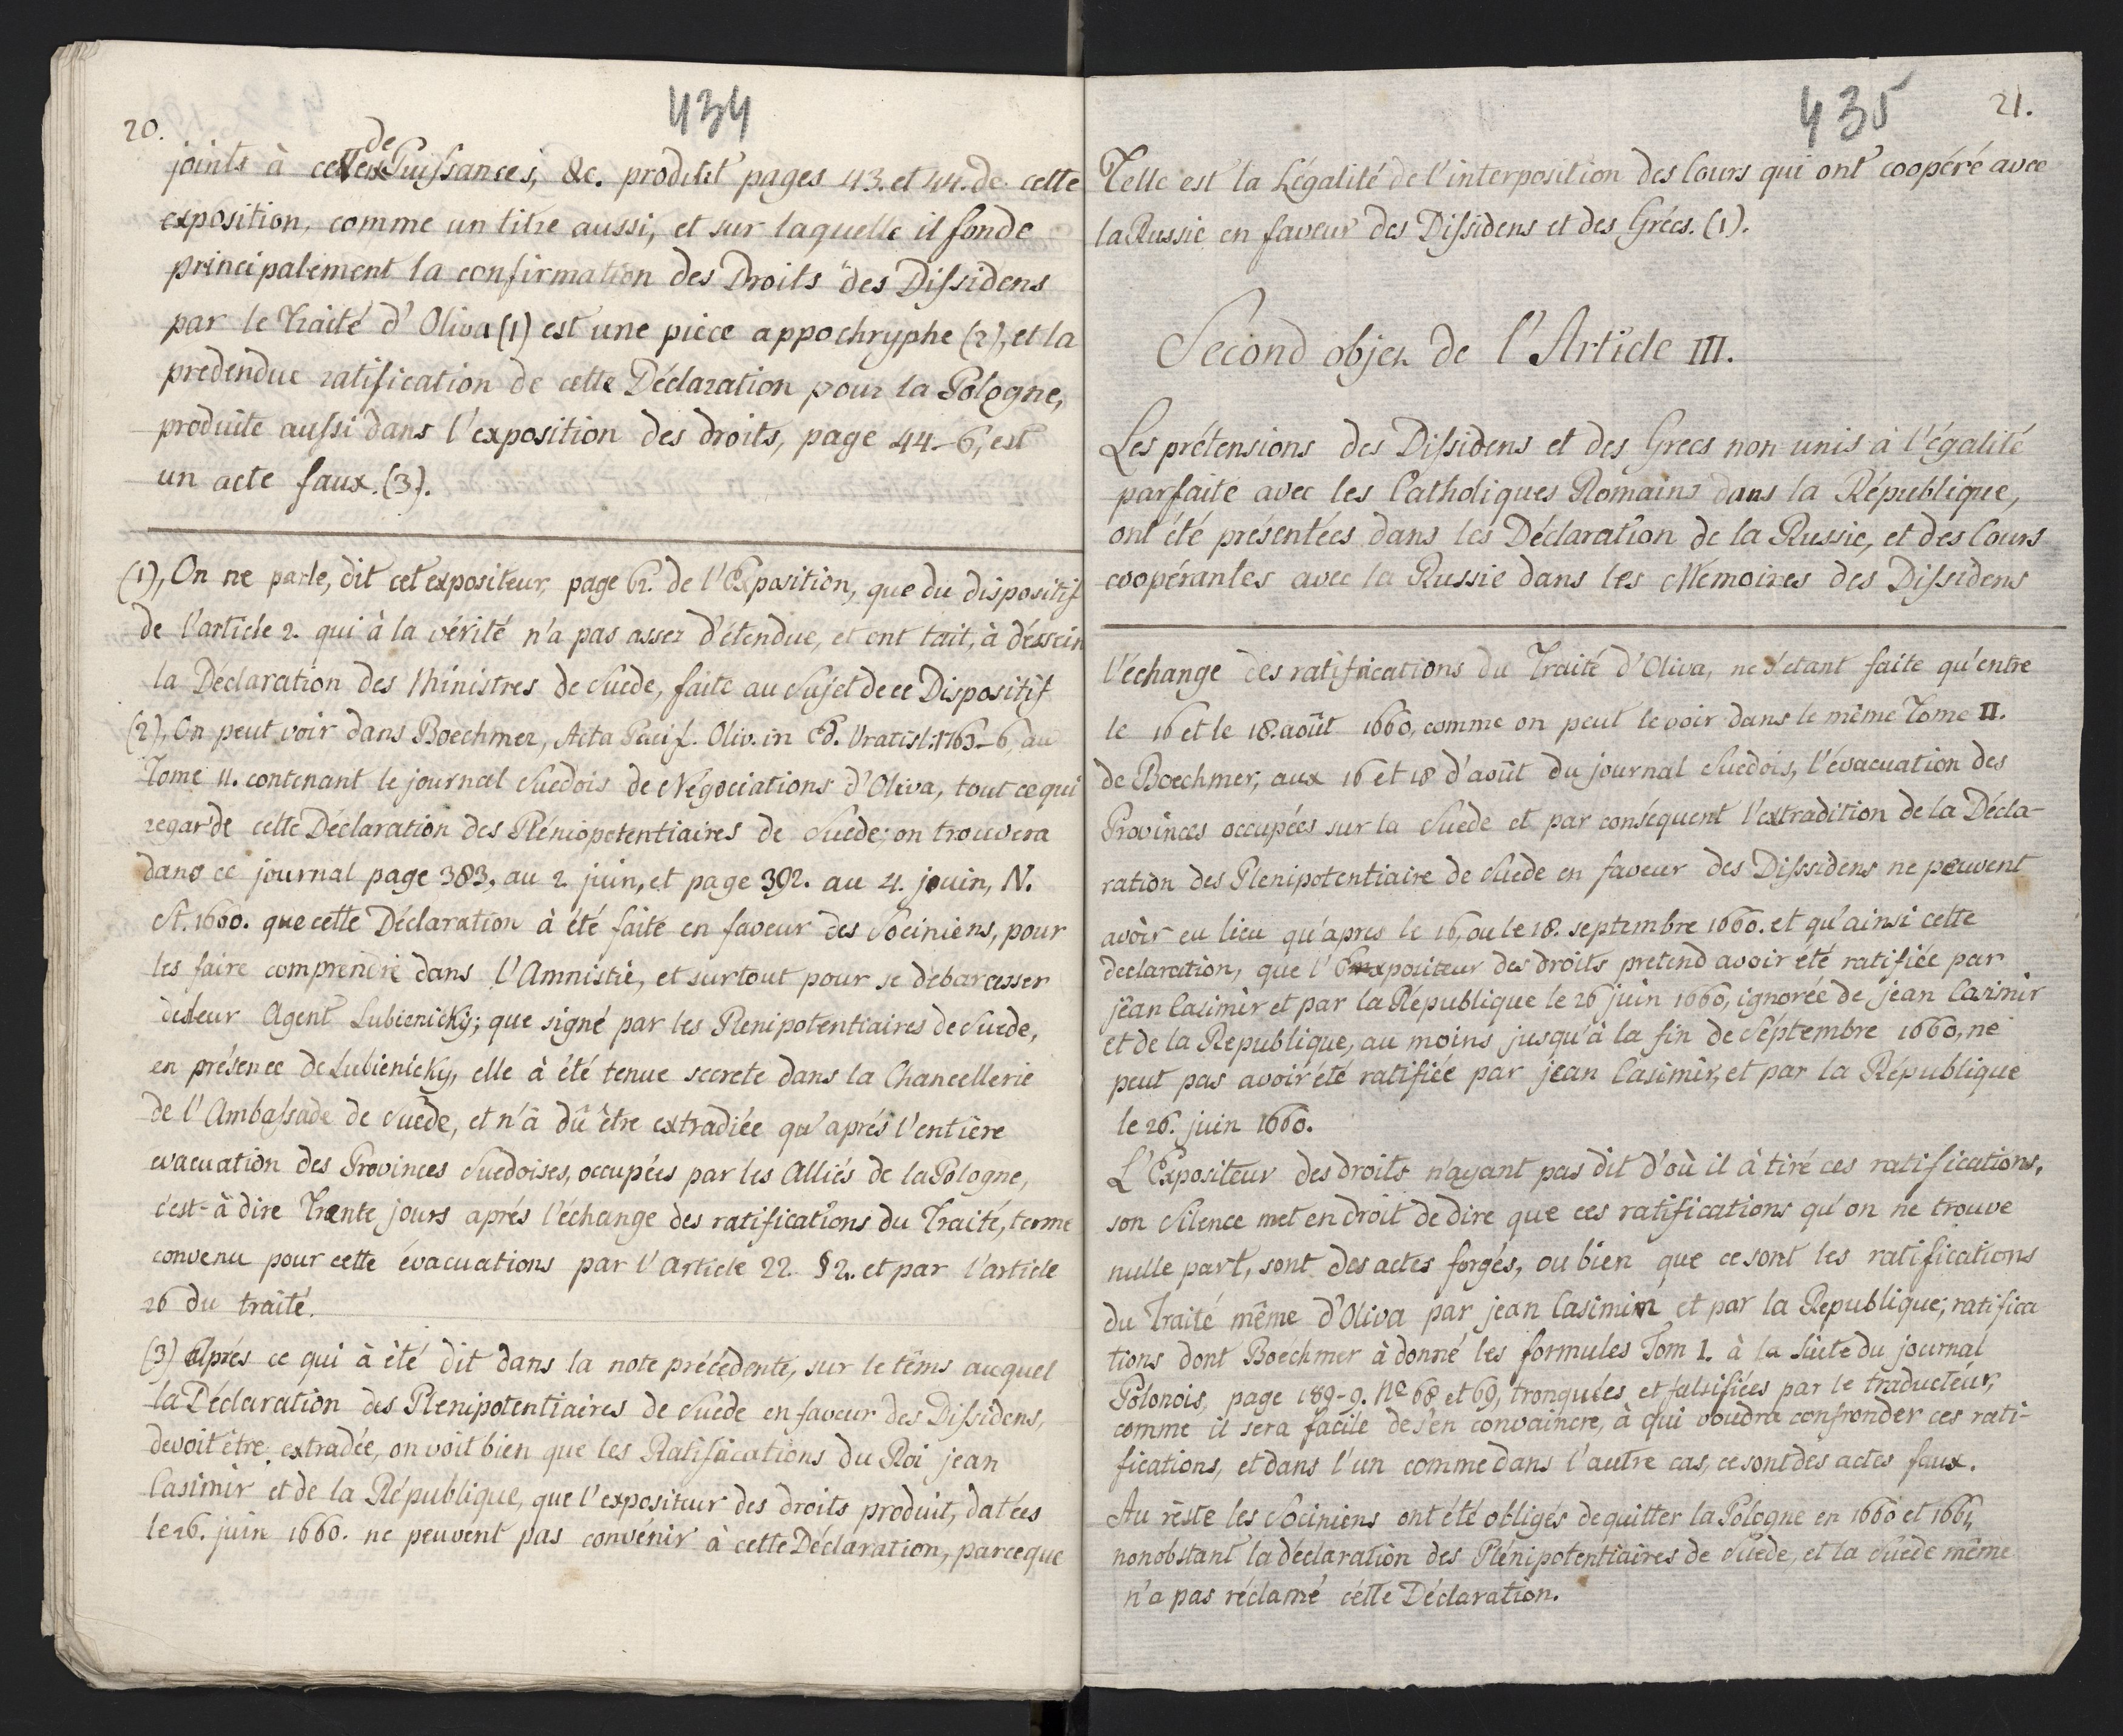 434
20.
joints à cette de Puissances, &c. produit pages 43. et 44. de cette
exposition, comme un titre aussi, et sur laquelle il fonde
principalement la confirmation des Droits des Dissidens
par le Traité d'Oliva (1) est une piéce appochryphe (2), et la
predendue ratification de cette Déclaration pour la Pologne,
produite aussi dans l'exposition des droits, page 44-6, est
un acte faux. (3).
(1), On ne parle, dit cet expositeur, page 62. de l'Exposition, que du dispositif
de l'article 2. qui à la vérité n'a pas assez d'étendue, et ont tait, à déssein
la Déclaration des Ministres de Suede, faite au Sujet de ce Dispositif
(2), On peut voir dans Boechmer, Acta Pacif. Oliv. in Ed. Vratisl. 1763-6, au
Tome II. contenant le journal Suedois de Négociations d'Oliva, tout ce qui
regarde cette Déclaration des Pléniopotentiaires de Suede; on trouvera
dans ce journal page 383, au 2 juin, et page 392. au 4. jouin, N.
St. 1660. que cette Déclaration à été faite en faveur des Sociniens, pour
les faire comprendre dans l'Amnistie, et surtout pour se débarasser
de leur Agent Lubienicky; que signé par les Plenipotentiaires de Suede,
en présence de Lubienicky, elle à été tenue secrete dans la Chancellerie
de l'Ambassade de Suède, et n'à dû être extradiée qu'aprés l'entiére
evacuation des Provinces Suedoises, occupées par les Alliés de la Pologne,
c'est-à dire Trente jours aprés l'échange des ratifications du Traité, terme
convenu pour cette évacuations par l'article 22. §2. et par l'article
26 du traité.
(3) Aprés ce qui à été dit dans la note précédente, sur le têms auquel
la Déclaration des Plenipotentiaires de Suede en faveur des Dissidens,
devoit être extradée, on voit bien que les Ratifications du Roi jean
Casimir et de la République, que l'expositeur des droits produit, datées
le 26. juin 1660. ne peuvent pas convénir à cette Déclaration, parceque
435
21.
Telle est la Légalité de l'interposition des Cours qui ont coopéré avec
la Russie en faveur des Dissidens et des Grécs. (1).
Second objet de l'Article III.
Les prétensions des Dissidens et des Grecs non unis à l'égalité
parfaite avec les Catholiques Romains dans la République,
ont été présentées dans les Déclaration de la Russie, et des Cours
coopérantes avec la Russie dans les Mémoires des Dissidens
l'échange des ratifications du Traité d'Oliva, ne s'étant faite qu'entre
le 16 et le 18. août 1660, comme on peut le voir dans le même Tome II.
de Boechmer, aux 16 et 18 d'août du journal Suedois, l'évacuation des
Provinces occupées sur la Suede et par conséquent l'extradition de la Décla-
ration des Plenipotentiaire de Suede en faveur des Dissidens ne peuvent
avoir eu lieu qu'apres le 16, ou le 18. septembre 1660. et qu'ainsi cette
declaration, que l'Expositeur des droits pretend avoir été ratifiée par
jean Casimir et par la République le 26 juin 1660, ignorée de jean Casimir
et de la Republique, au moins jusqu'à la fin de Séptembre 1660, ne
peut pas avoir été ratifiée par jean Casimir, et par la République
le 26. juin 1660.
L'Expositeur des droits n'ayant pas dit d'où il à tiré ces ratifications,
son Silence met en droit de dire que ces ratifications qu'on ne trouve
nulle part, sont des actes forgés, ou bien que ce sont les ratifications
du Traité même d'Oliva par jean Casimir et par la Republique; ratifica
tions dont Boechmer à donné les formules Tom I. à la Suite du journal
Polonois, page 189-9. No 68 et 69, tronquées et falsifiées par le traducteur,
comme il sera facile de s'en convaincre, à qui voudra confronder ces rati-
fications, et dans l'un comme dans l'autre cas, ce sont des actes faux.
Au réste les Sociniens ont été obligés de quitter la Pologne en 1660 et 1661,
nonobstant la déclaration des Plénipotentiaires de Suede, et la Suede même
n'a pas réclamé cette Déclaration.